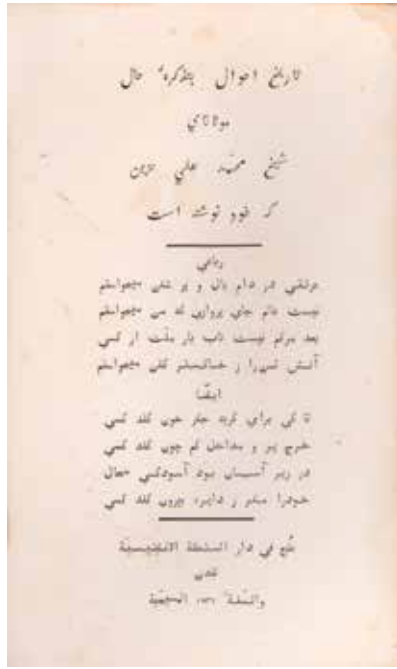 تاریخ احوال بتذکرهٔ حال
مولانای
شیخ محمد علي حزین
که خود نوشته است
رباعي
در دام بال و پر میخواستم
نیست جای پروازی که من میخواستم
بعد مرگم نیست تاب بار منّت از کسي
آتش را ز خاکستر کفن میخواستم
ایضًا
تا کی برای گریه جگر خون کند کسي
خرج پر و مداخل کم چون کند کسي
در زیر آسمان بود آسودگي محال
خودرا مگر ز دایره بیرون کند کسي
طبع في دار السلطنة الانگلیسیّة
لندن
والسنة المسیحیّة